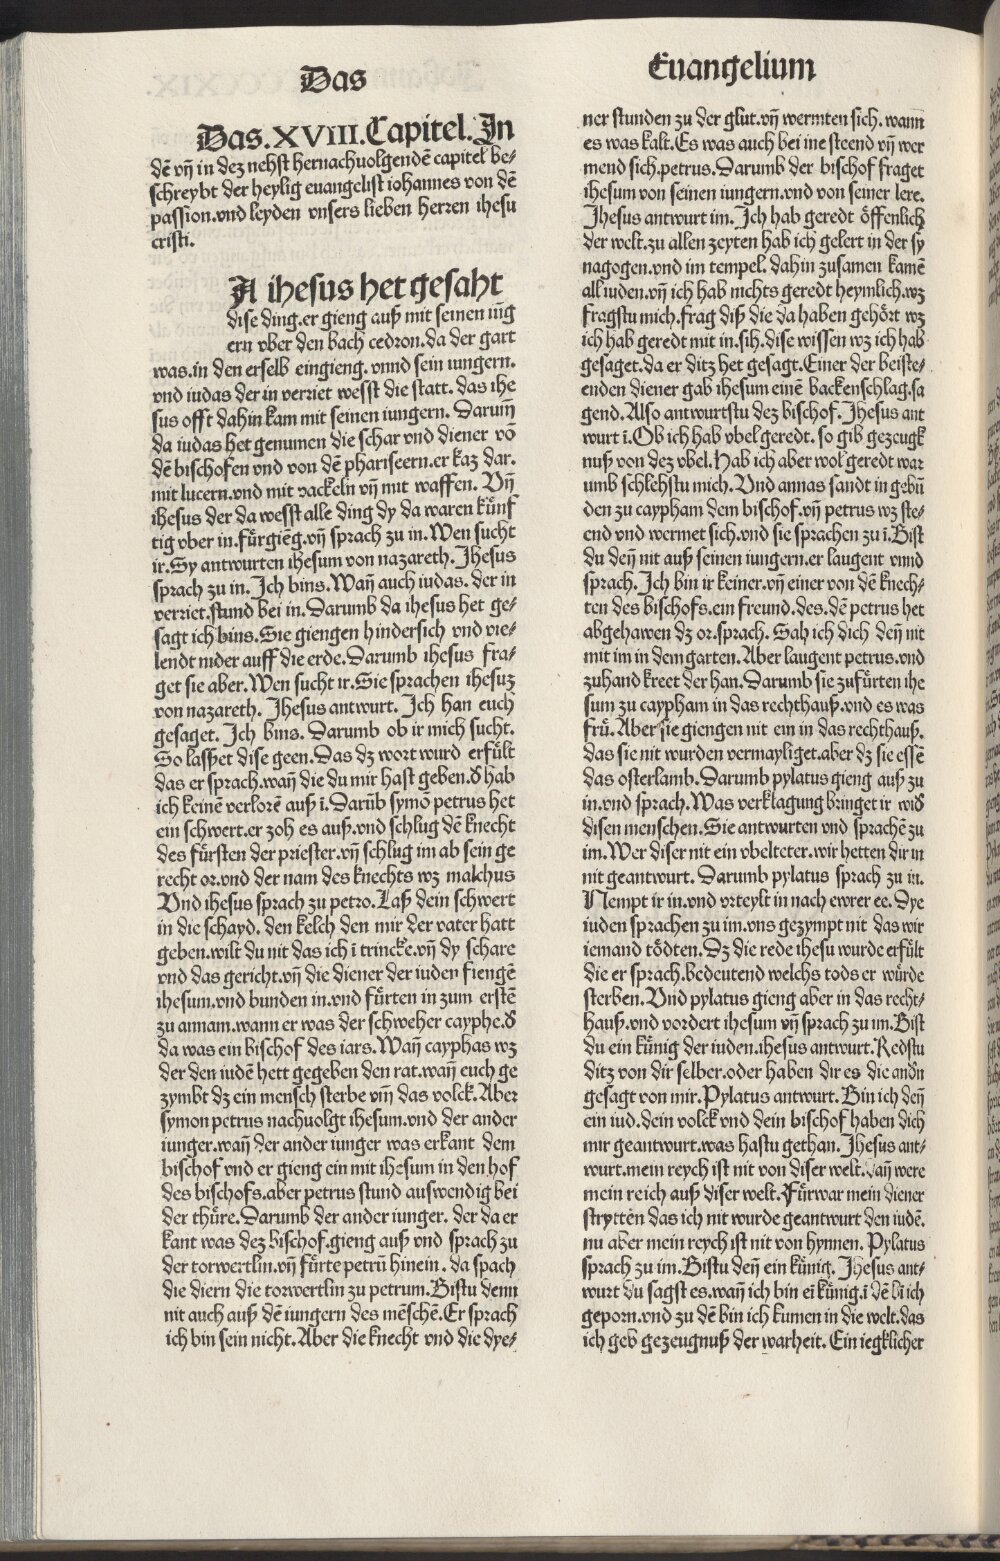 Das
Euangelium
Das.XVIII.Capitel.In
dē vn̄ in dez nehst hernachuolgendē capitel be⸗
schreybt der heylig euangelist iohannes von dē
passion.vnd leyden vnsers lieben herren ihesu
cristi.
A ihesus het gesaht
dise ding.er gieng auß mit seinen iūg
ern vber den bach cedron.da der gart
was.in den erselb eingieng. vnnd sein iungern.
vnd iudas der in verriet wesst die statt. das ihe
sus offt dahin kam mit seinen iungern. Darum̄
da iudas het genumen die schar vnd diener vō
dē bischofen vnd von dē phariseern.er kaz dar.
mit lucern.vnd mit vackeln vn̄ mit waffen. Vn̄
ihesus der da wesst alle ding dy da waren kuͤnf
tig vber in.fuͤrgiēg.vn̄ sprach zu in.Wen sucht
ir.Sy antwurten ihesum von nazareth. Ihesus
sprach zu in. Ich bins.Wan̄ auch iudas. der in
verriet.stund bei in.Darumb da ihesus het ge⸗
sagt ich bins.Sie giengen hindersich vnd vie⸗
lendt nider auff die erde.Darumb ihesus fra⸗
get sie aber.Wen sucht ir.Sie sprachen ihesuz
von nazareth. Ihesus antwurt. Ich han euch
gesaget. Ich bins. Darumb ob ir mich sucht.
So lasset dise geen.Das dz wort wurd erfuͤlt
das er sprach.wan̄ die du mir hast geben.d̕ hab
ich keinē verlorē auß ī.Darūb symō petrus het
ein schwert.er zoh es auß.vnd schlug dē knecht
des fuͤrsten der priester.vn̄ schlug im ab sein ge
recht or.vnd der nam des knechts wz malchus
Vnd ihesus sprach zu petro.Laß dein schwert
in die schayd. den kelch den mir der vater hatt
geben.wilt du nit das ich ī trincke.vn̄ dy schare
vnd das gericht.vn̄ die diener der iuden fiengē
ihesum.vnd bunden in.vnd fuͤrten in zum erstē
zu annam.wann er was der schweher cayphe.d̕
da was ein bischof des iars.Wan̄ cayphas wz
der den iudē hett gegeben den rat.wan̄ euch ge
zymbt dz ein mensch sterbe vm̄ das volck.Aber
symon petrus nachuolgt ihesum.vnd der ander
iunger.wan̄ der ander iunger was erkant dem
bischof vnd er gieng ein mit ihesum in den hof
des bischofs.aber petrus stund auswendig bei
der thuͤre.Darumb der ander iunger. der da er
kant was dez bischof.gieng auß vnd sprach zu
der torwertlin.vn̄ fuͤrte petrū hinein. da spach
die diern die torwertlin zu petrum.Bistu denn
nit auch auß dē iungern des mēschē.Er sprach
ich bin sein nicht.Aber die knecht vnd die dye⸗
ner stunden zu der glut.vn̄ wermten sich.wann
es was kalt.Es was auch bei ine steend vn̄ wer
mend sich.petrus.Darumb der bischof fraget
ihesum von seinen iungern.vnd von seiner lere.
Ihesus antwurt im.Ich hab geredt oͤffenlich
der welt.zu allen zeyten hab ich gelert in der sy
nagogen.vnd im tempel. dahin zusamen kamē
all iuden.vn̄ ich hab nichts geredt heymlich.wz
fragstu mich.frag diß die da haben gehoͤrt wz
ich hab geredt mit in.sih.dise wissen wz ich hab
gesaget.da er ditz het gesagt.Einer der beiste⸗
enden diener gab ihesum einē backenschlag.sa
gend.Also antwurtstu dez bischof.Ihesus ant
wurt ī.Ob ich hab vbel geredt. so gib gezeugk
nuß von dez vbel.Hab ich aber wol geredt war
umb schlehstu mich.Vnd annas sandt in gebū
den zu caypham dem bischof.vn̄ petrus wz ste⸗
end vnd wermet sich.vnd sie sprachen zu ī.Bist
du den̄ nit auß seinen iungern.er laugent vnnd
sprach. Ich bin ir keiner.vn̄ einer von dē knech⸗
ten des bischofs.ein freund.des.dē petrus het
abgehawen dz or.sprach. Sah ich dich den̄ nit
mit im in dem garten.Aber laugent petrus.vnd
zuhand kreet der han.Darumb sie zufuͤrten ihe
sum zu caypham in das rechthauß.vnd es was
fruͤ.Aber sie giengen nit ein in das rechthauß.
das sie nit wurden vermayliget.aber dz sie essē
das osterlamb.Darumb pylatus gieng auß zu
in.vnd sprach.Was verklagung bringet ir wid̕
disen menschen.Sie antwurten vnd sprachē zu
im.Wer diser nit ein vbelteter.wir hetten dir in
nit geantwurt. Darumb pylatus sprach zu in.
Nempt ir in.vnd vrteylt in nach ewrer ee. Dye
iuden sprachen zu im.vns gezympt nit das wir
iemand toͤdten.Dz die rede ihesu wurde erfuͤlt
die er sprach.bedeutend welchs tods er wuͤrde
sterben.Vnd pylatus gieng aber in das recht⸗
hauß.vnd vordert ihesum vn̄ sprach zu im.Bist
du ein kuͤnig der iuden.ihesus antwurt.Redstu
ditz von dir selber.oder haben dir es die and̕n
gesagt von mir.Pylatus antwurt.Bin ich den̄
ein iud.dein volck vnd dein bischof haben dich
mir geantwurt.was hastu gethan.Ihesus ant⸗
wurt.mein reych ist nit von diser welt.wan̄ were
mein reich auß diser welt.Fuͤrwar mein diener
strytten das ich nit wurde geantwurt den iudē.
nu aber mein reych ist nit von hynnen. Pylatus
sprach zu im.Bistu den̄ ein kuͤnig. Ihesus ant⸗
wurt du sagst es.wan̄ ich bin eī kuͤnig.ī dē bī ich
geporn.vnd zu dē bin ich kumen in die welt.das
ich geb gezeugnuß der warheit. Ein iegklicher